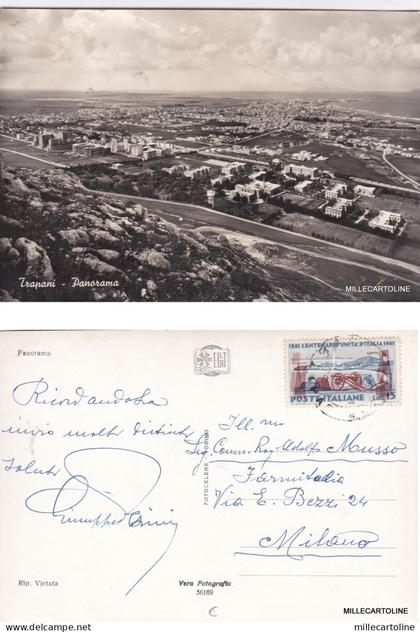 MILLECARTOLINE
Trapani - Panorama
MILLECARTOLINE
Panorama
1861 CENTENARIO UNITÀ D'ITALIA 1961
GAETA
POSTE ITALIANE LIRE 15
Ricordandola
invio molti distinti
saluti
Ill.mo
Sig. Comm. Rag. Adolfo Musso
Farmitalia
Via E. Bezzi 24
Milano
FOTOCELERE - TORINO
Rip. Vietata
Vera Fotografia
56169
C
MILLECARTOLINE